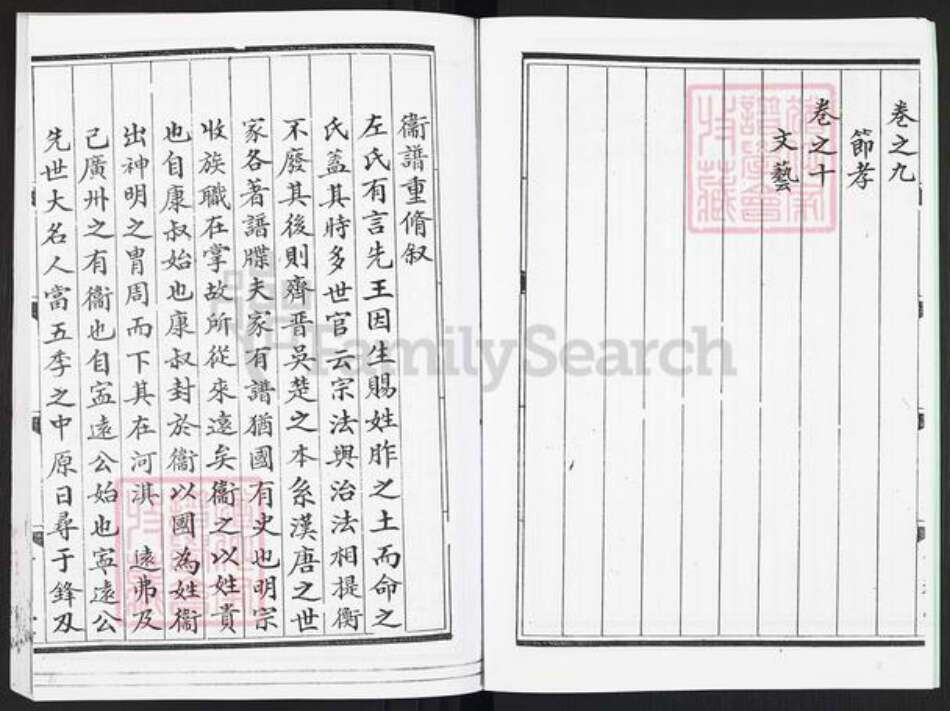 卷之九
節孝
卷之十
文藝
衞譜重脩叙
左氏有言先王因生賜姓胙之土而命之
氏蓋其時多世官云宗法與治法相提衡
不廢其後則齊晋吳楚之本系漢唐之世
家各著譜牒夫家有譜猶國有史也明宗
收族職在掌故所從來遠矣衞之以姓貴
也自康叔始也康叔封於衞以國為姓衞
出神明之胄周而下其在河淇 遠弗及
己廣州之有衞也自寍遠公始也寍遠公
先世大名人當五季之中原日尋于鋒刄
FamilySearch